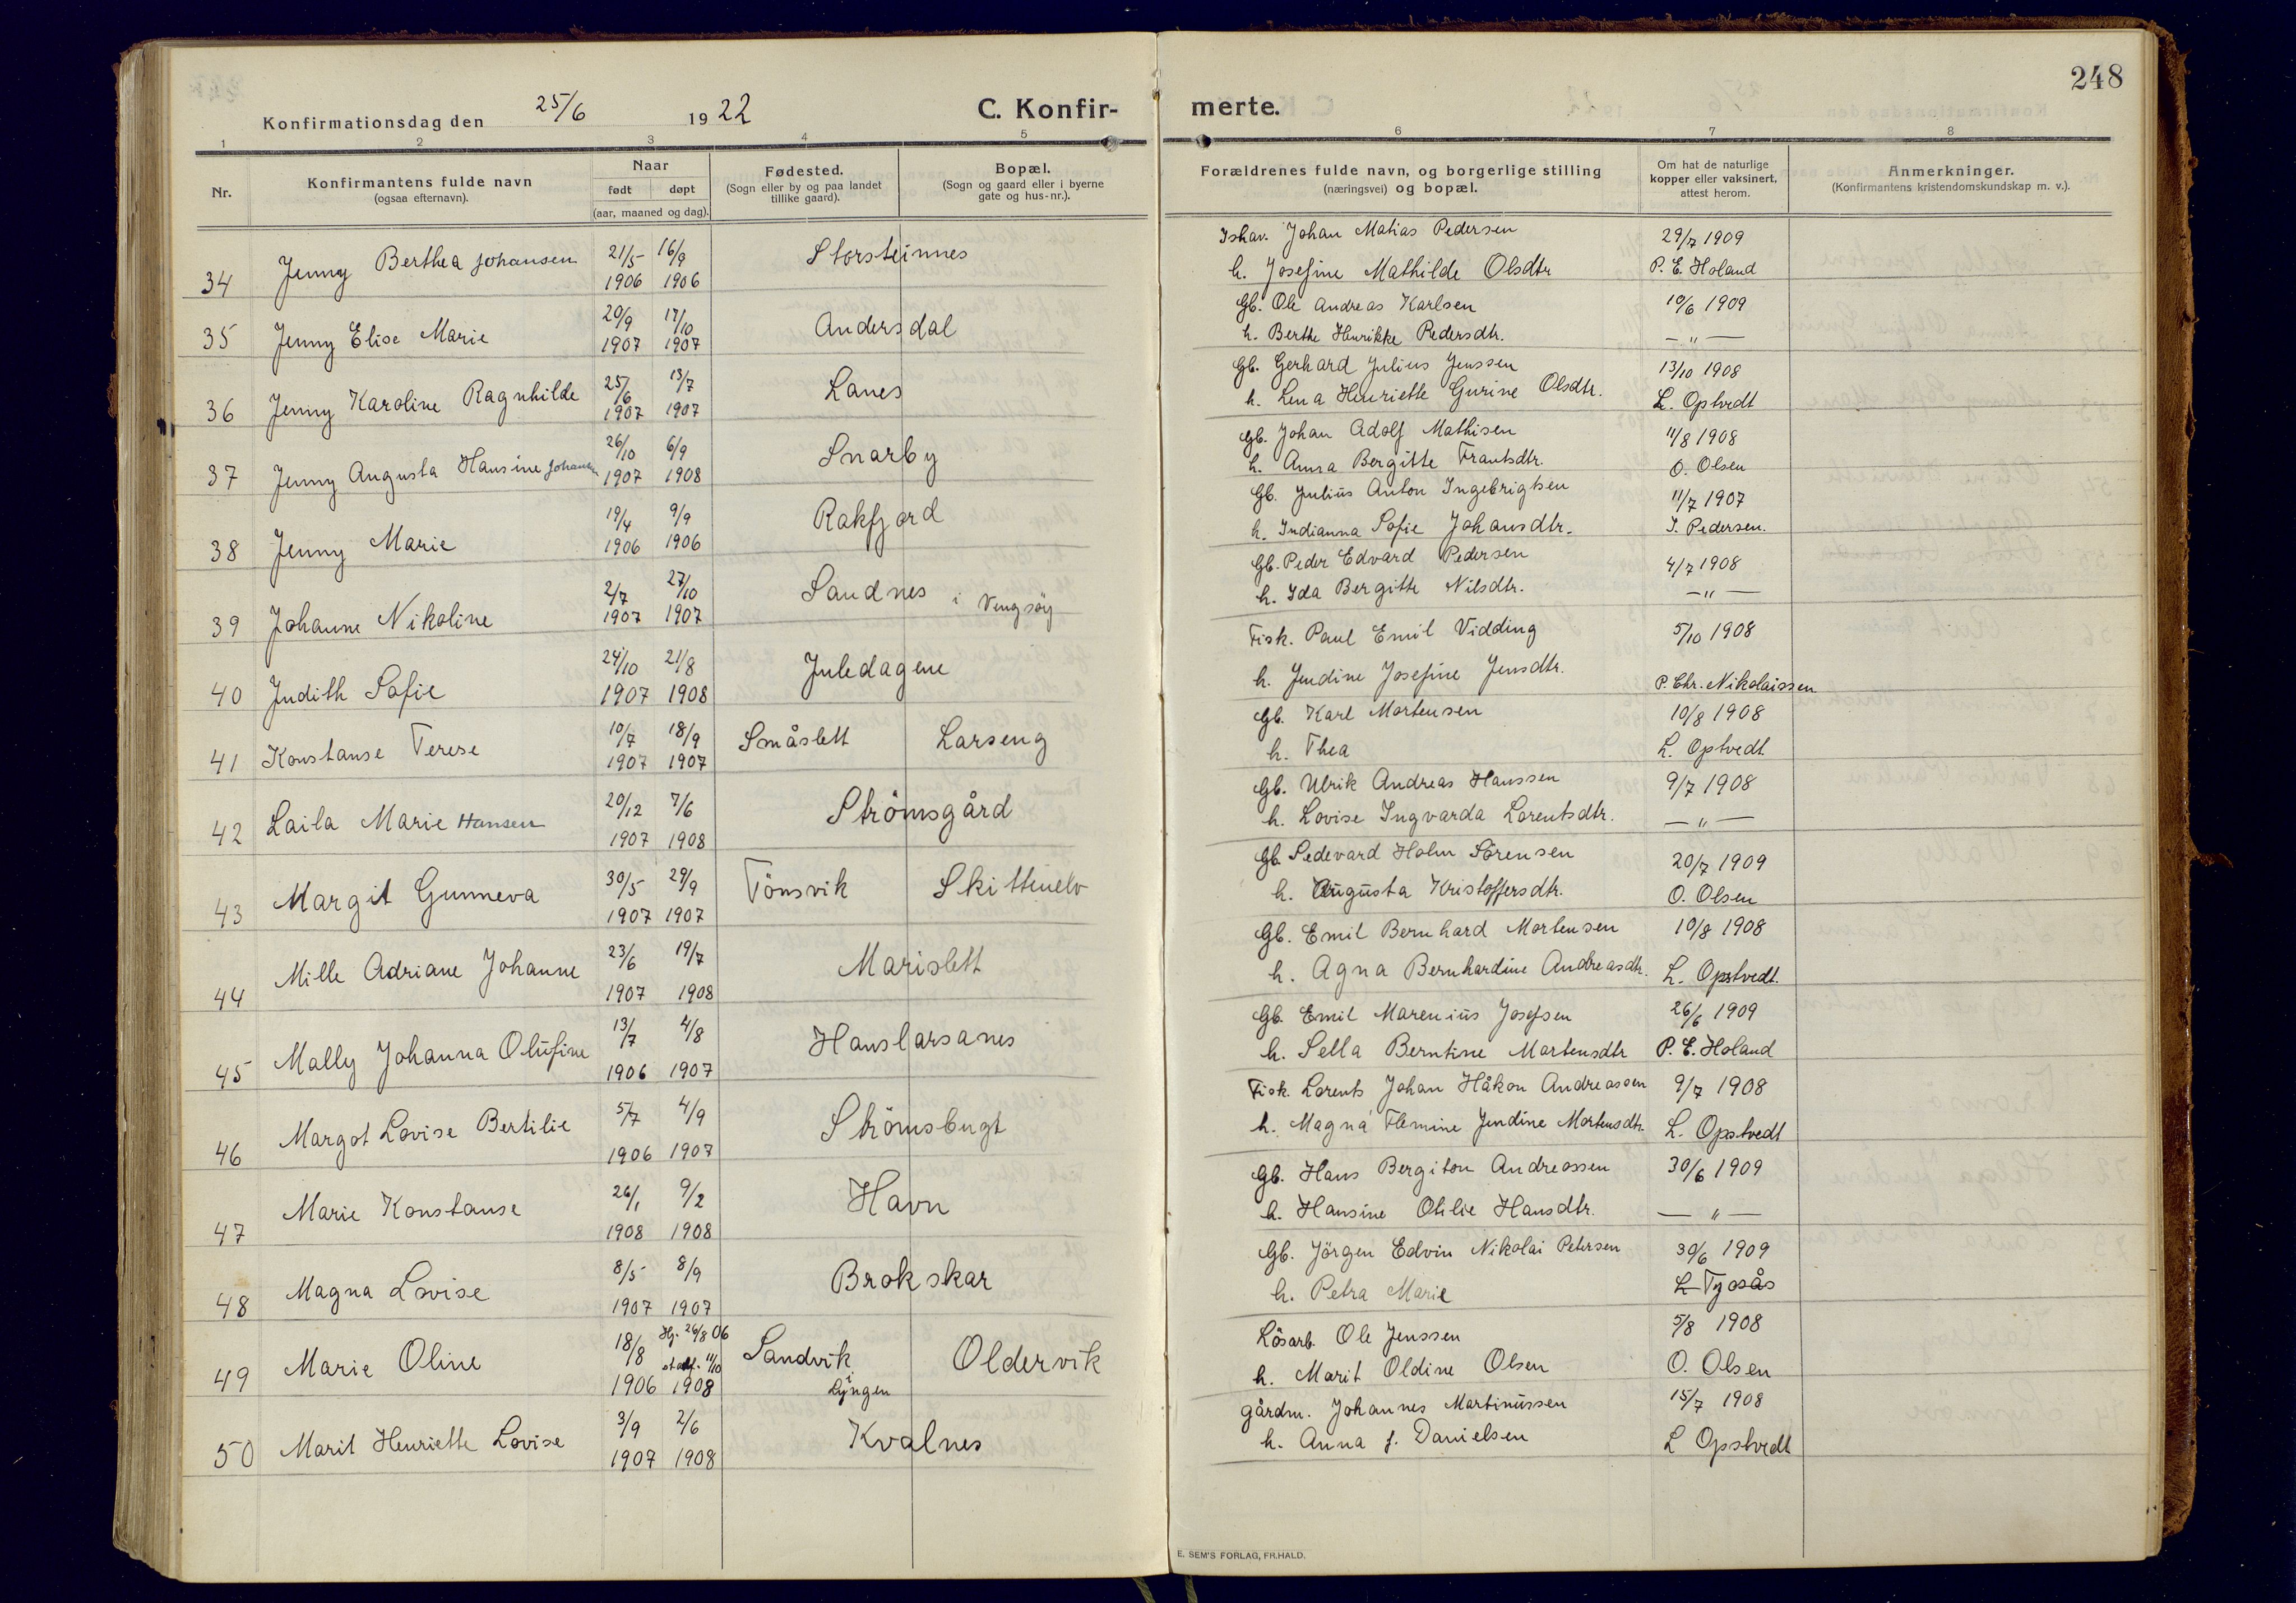 248
Konfirmationsdag den 25/6 1922 C. Konfir- merte.
1 2 3 4 5 6 7 8
Nr.
Konfirmantens fulde navn
(ogsaa efternavn).
Naar
født døpt
(aar, maaned og dag).
Fødested.
(Sogn eller by og paa landet
tillike gaard).
Bopæl.
(Sogn og gaard eller i byerne
gate og hus-nr.).
Forældrenes fulde navn, og borgerlige stilling
(næringsvei) og bopæl.
Om hat de naturlige
kopper eller vaksinert,
attest herom.
Anmerkninger.
(Konfirmantens kristendomskundskap m. v.).
34 Jenny Berthea Johansen 21/5 1906 16/9 1906 Storsteinnes
Ishav. Johan Matias Pedersen 29/7 1909
h. Josefine Mathilde Olsdtr P. E. Holand
35 Jenny Elise Marie 20/9 1907 17/10 1907 Andersdal
Gb. Ole Andreas Karlsen 10/6 1909
h. Berthe Henrikke Pedersdtr. — " —
36 Jenny Karoline Ragnhilde 25/6 1907 13/7 1907 Lanes
Gb. Gerhard Julius Jenssen 13/10 1908
h. Lena Henriette Gurine Olsdtr. L. Optvedt
37 Jenny Augusta Hansine Johansen 26/10 1907 6/9 1908 Snarby
Gb. Johan Adolf Mathisen 11/8 1908
h. Anna Bergitte Frantsdtr. O. Olsen
38 Jenny Marie 19/4 1906 9/9 1906 Rakfjord
Gb. Julius Anton Ingebrigtsen 11/7 1907
h. Indianna Sofie Johansdtr. I. Pedersen.
39 Johanne Nikoline 2/7 1907 27/10 1907 Sandnes i Vengsøy
Gb. Peder Edvard Pedersen 4/7 1908
h. Ida Bergitte Nilsdtr. — " —
40 Judith Sofie 24/10 1907 21/8 1908 Juledagene
Fisk. Paul Emil Vidding 5/10 1908
h. Jendine Josefine Jensdtr. P. Chr. Nikolaissen
41 Konstanse Terese 10/7 1907 18/9 1907 Småslett Larseng
Gb. Karl Mortensen 10/8 1908
h. Thea L. Optvedt
42 Laila Marie Hansen 20/12 1907 7/6 1908 Strömsgård
Gb. Ulrik Andreas Hanssen 9/7 1908
h. Lovise Ingvarda Lorentsdtr. — " —
43 Margit Gunneva 30/5 1907 29/9 1907 Tönsvik Skittenelv
Gb. Sedevard Holm Sörensen 20/7 1909
h. Augusta Kristoffersdtr. O. Olsen
44 Mille Adriane Johanne 23/6 1907 19/7 1908 Marislett
Gb. Emil Bernhard Mortensen 10/8 1908
h. Agna Bernhardine Andreasdtr. L. Opstvedt.
45 Mally Johanna Olufine 13/7 1906 4/8 1907 Hanslarsanes
Gb. Emil Marenius Josefsen 26/6 1909
h. Sella Berntine Mortensdtr P. E. Holand
46 Margot Lovise Bertilie 5/7 1906 4/9 1907 Strömsbugt
Fisk. Lorents Johan Håkon Andreassen 9/7 1908
h. Magna Flemine Jendine Mortensdtr. L. Opstvedt
47 Marie Konstanse 26/1 1908 9/2 1908 Havn
Gb. Hans Bergiton Andreassen 30/6 1909
h. Hansine Otilie Hansdtr. — " —
48 Magna Lovise 8/5 1907 8/9 1907 Brokskar
Gb. Jörgen Edvin Nikolai Petersen 30/6 1909
h. Petra Marie L Tyosås
49 Marie Oline 18/8 1906 Hj. 26/8 06 11/10 1908 Sandvik i Lyngen Oldervik
Lösarb. Ole Jenssen 5/8 1908
h. Marit Oldine Olsen O. Olsen
50 Marit Henriette Lovise 3/9 1907 2/6 1908 Kvalnes
gårdm. Johannes Martinussen 15/7 1908
h. Anna J. Danielsen L Opstvedt
E. SEM'S FORLAG, FR.HALD.